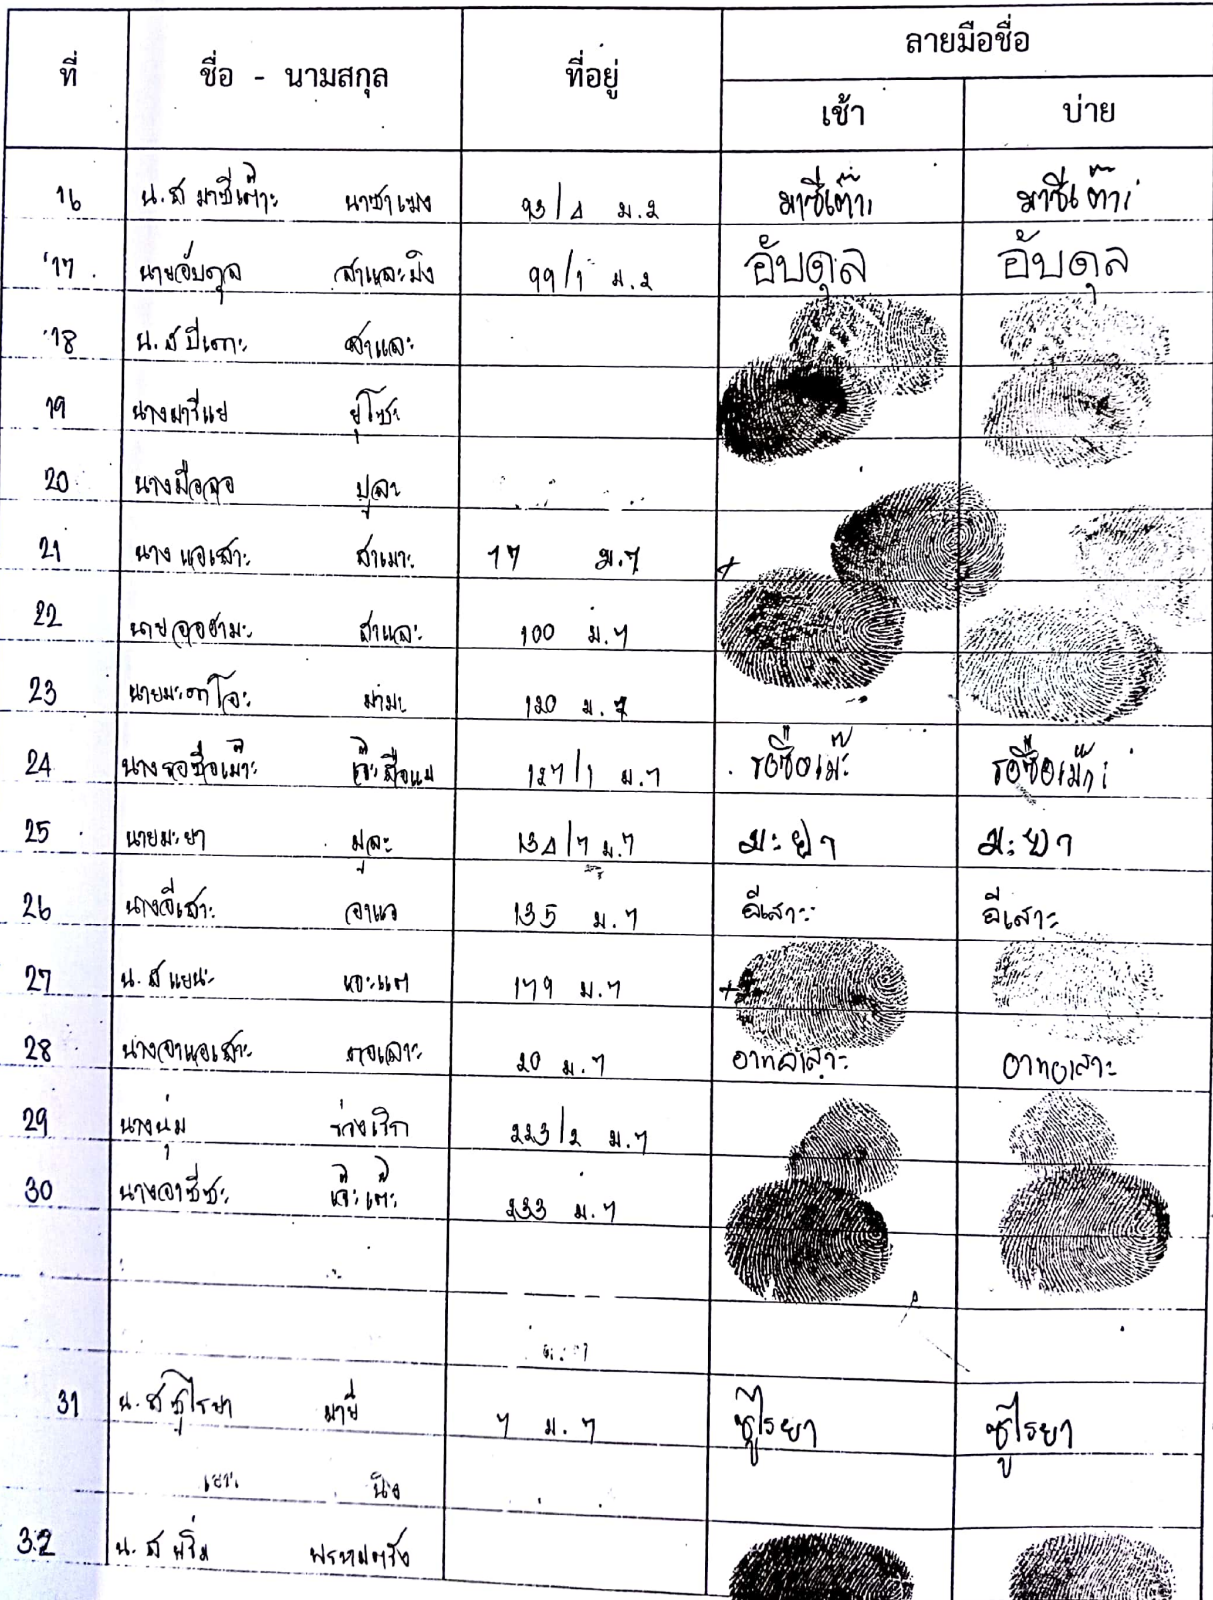 ที่ ชื่อ - นามสกุล ที่อยู่ ลายมือชื่อ
เช้า บ่าย
16 น.ส มาซีเต๊าะ 93/4 ม.2 มาซีเต๊าะ มาซีเต๊าะ
17 นายอับดุล สาและมิง 99/1 ม.2 อับดุล อับดุล
18 น.ส ปีเตาะ สาและ
19 นางมารีแย ยูโซะ
20 นางมือลอ ปูละ
21 นาง แอเสาะ สาเมาะ 17 ม.7
22 นาย สาและ 100 ม.7
23 มามะ 120 ม.7
24 นางรอซือเม๊าะ เจ๊ะสือแม 127/1 ม.7 รอซือเม๊ะ รอซือเม๊าะ
25 นายมะยา มูละ 134/7 ม.7 มะยา มะยา
26 นางอีเสาะ อาแว 135 ม.7 อีเสาะ อีเสาะ
27 น.ส แยนะ เจะแต 179 ม.7
28 20 ม.7
29 นางนุ่ม ร่วงเริก 223/2 ม.7
30 นางอาซีซะ เจ๊ะเต๊ะ 233 ม.7
31 น.ส ซูไรยา มายี 7 ม.7 ซูไรยา ซูไรยา
32 น.ส พริ้ม พรหมตรัง